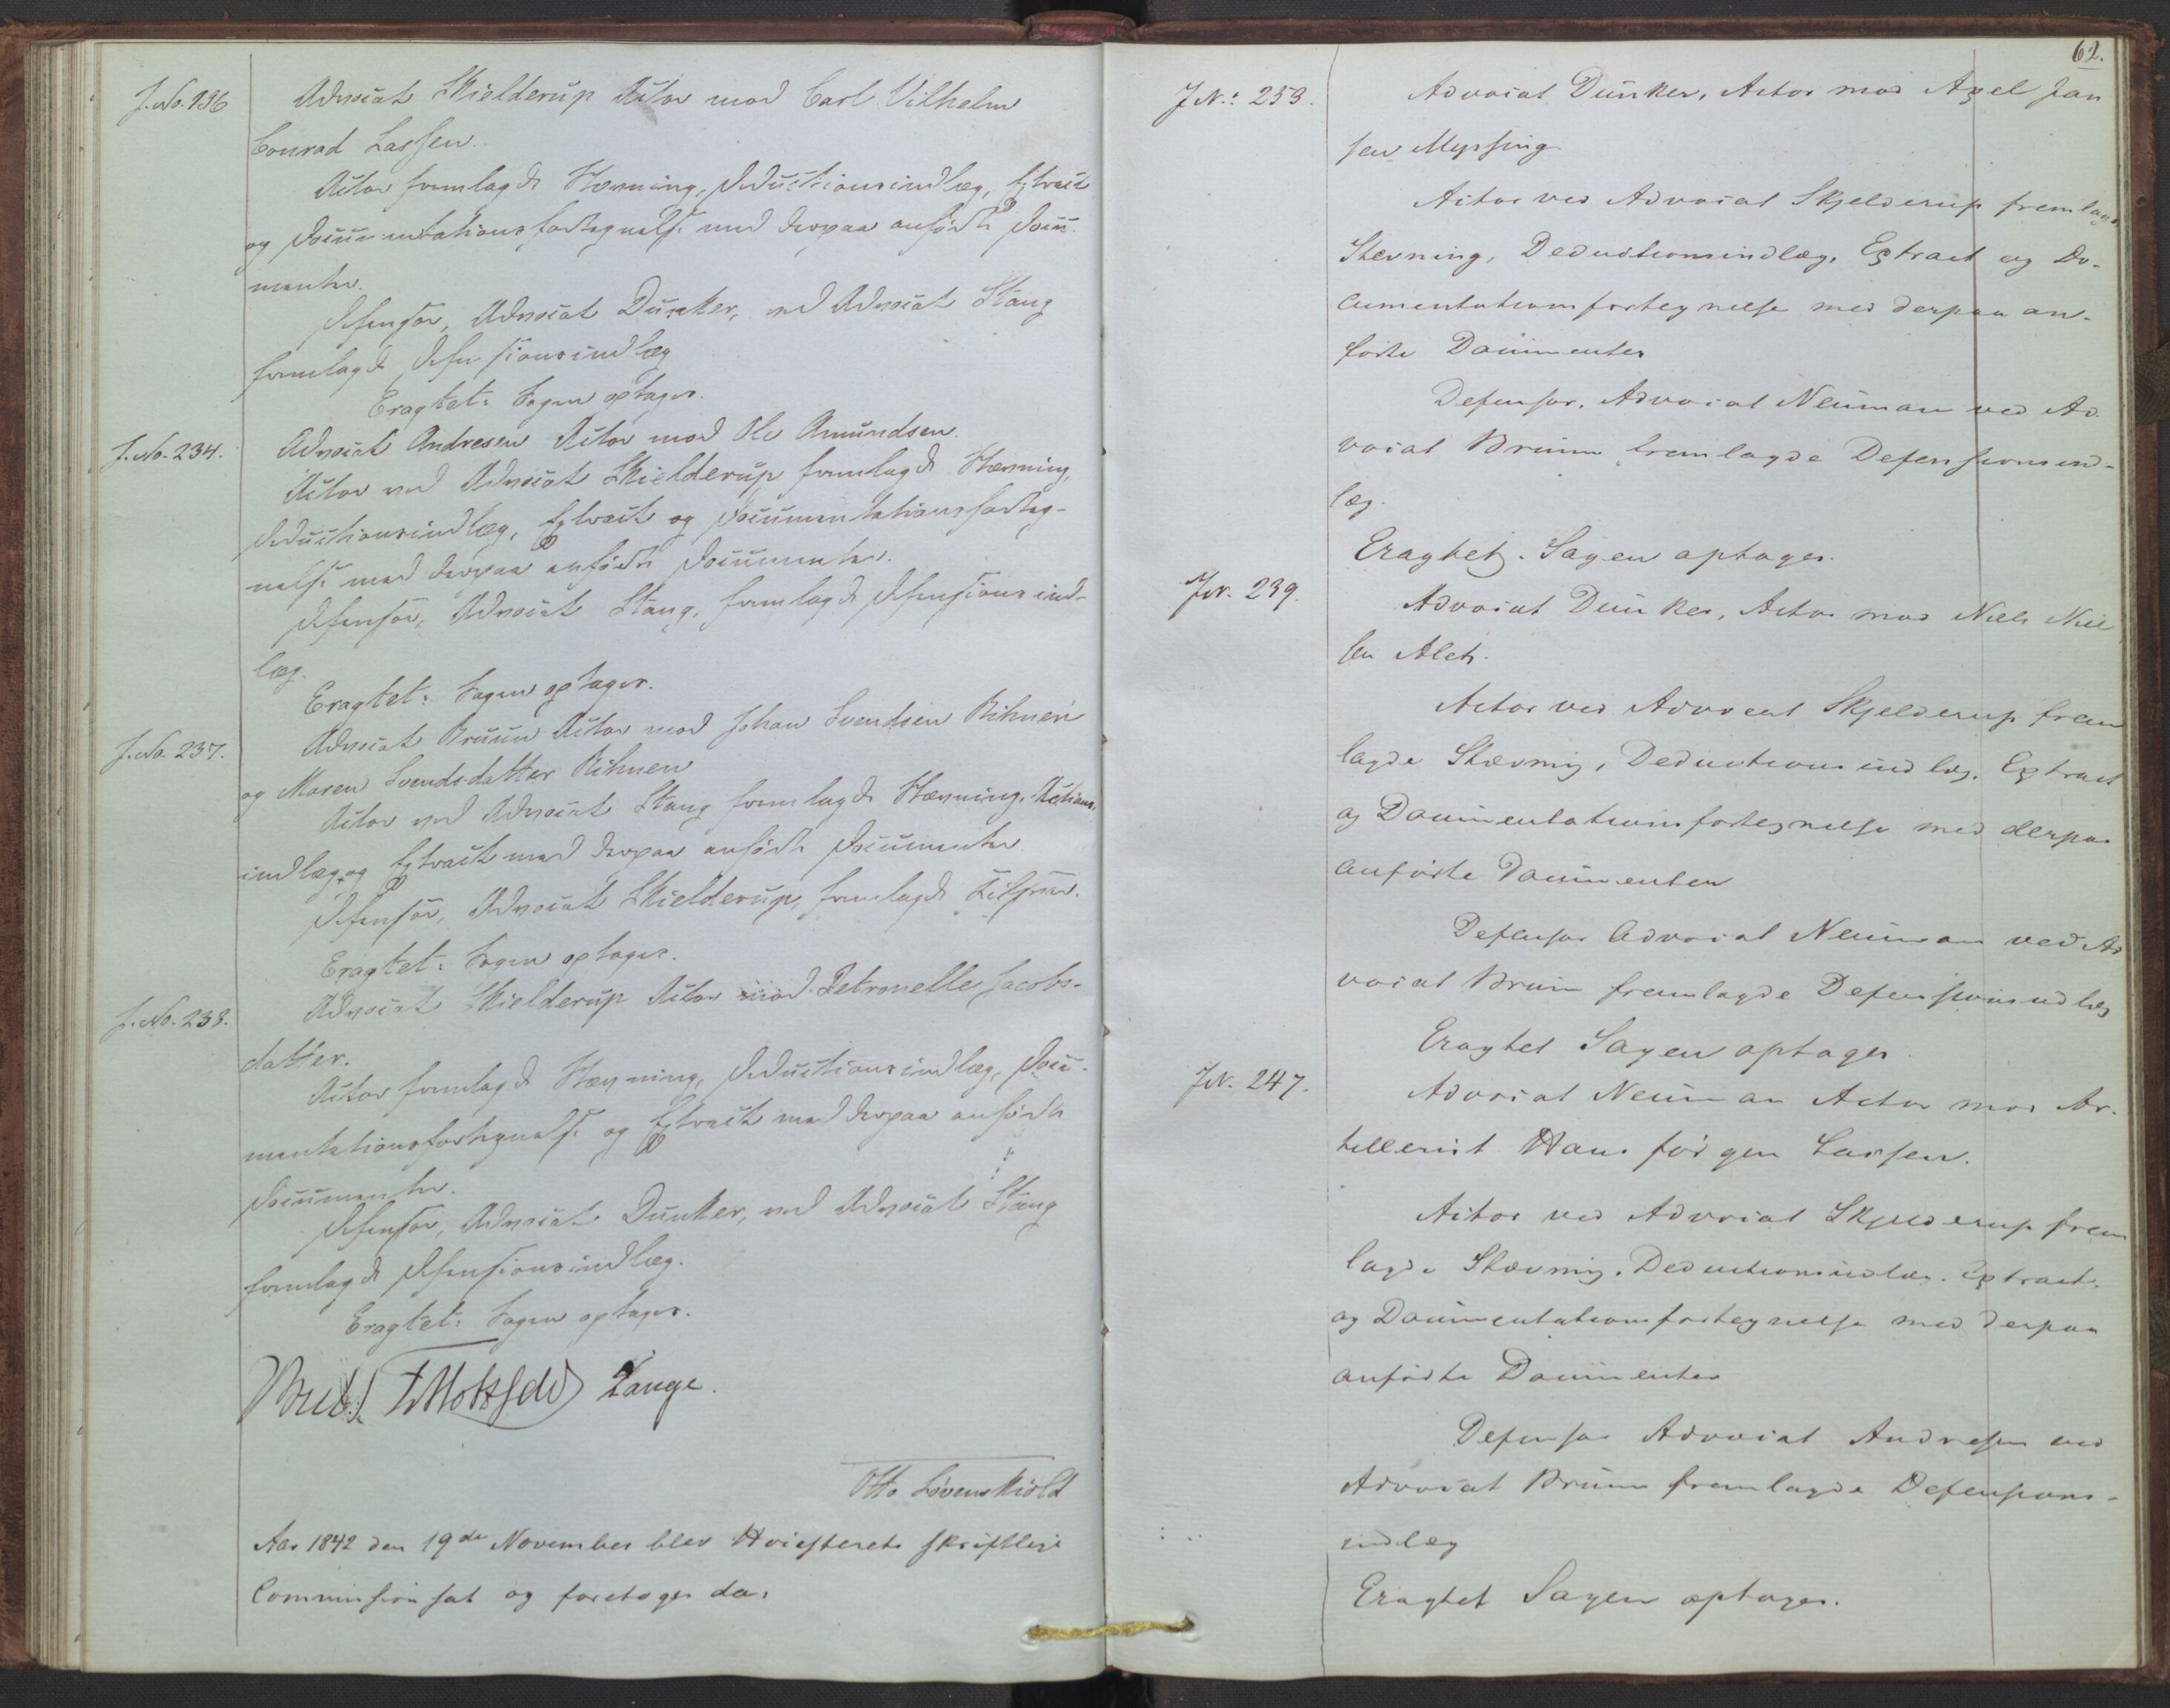 J. No. 136
Advocat Skielderup Actor mod Carl Vilhelm
Conrad Lassen.
Actor fremlagde Stævning, Deductionsindlæg, Extract
og Documentationsfortegnelse med derpaa anførte Docu-
menter.
Defensor, Advocat Dunker, ved Advocat Stang
fremlagde Defensionsindlæg
Eragtet: Sagen optages.
J. No. 234.
Advocat Andresen Actor mod Ole Amundsen.
Actor ved Advocat Skielderup fremlagde Stævning,
Deductionsindlæg, Extract og Documentationsforteg-
nelse med derpaa anførte Documenter.
Defensor, Advocat Stang, fremlagde Defensionsind-
læg.
Eragtet: Sagen optages.
J. No. 237.
Advocat Bruun Actor mod Johan Svendsen Rihnen
og Maren Svendsdatter Rihnen
Actor ved Advocat Stang fremlagde Stævning, Actions-
indlæg og Extract med derpaa anførte Documenter
Defensor, Advocat Skielderup, fremlagde
Eragtet: Sagen optages.
J. No. 238.
Advocat Skielderup Actor mod Petronelle Jacobs-
datter.
Actor fremlagde Stævning, Deductionsindlæg, Docu-
mentationsfortegnelse og Extract med derpaa anførte
Documenter.
Defensor, Advocat Dunker, ved Advocat Stang
fremlagde Defensionsindlæg.
Eragtet: Sagen optages.
Lange.
Otto Løvenskiold
Aar 1842 den 19de November blev Høiesterets skriftlige
Commission sat og foretoges da:
62.
J N.: 253.
Advocat Dunker, Actor mod Axel Jan
sen Myssing
Actor ved Advocat Skjelderup fremlagde
Stævning, Deductionsindlæg, Extract og Do-
cumentationsfortegnelse med derpaa an-
førte Documenter
Defensor, Advocat Neuman ved Ad
vocat Bruun fremlagde Defensionsind-
læg.
Eragtet. Sagen optages.
JN. 239.
Advocat Dunker, Actor mod Niels Niel
sen
Actor ved Advocat Skjelderup frem
lagde Stævning, Deductionsindlæg, Extract
og Documentationsfortegnelse med derpaa
anførte Documenter
Defensor Advocat Neuman ved Ad
vocat Bruun fremlagde Defensionsindlæg
Eragtet Sagen optages
JN. 247.
Advocat Neuman Actor mod Ar-
tillerist Hans Jørgen Larsen.
Actor ved Advocat Skjelderup frem
lagde Stævning, Deductionsindlæg, Extract,
og Documentationsfortegnelse med derpaa
anførte Documenter
Defensor Advocat Andresen ved
Advocat Bruun fremlagde Defensions-
indlæg
Eragtet Sagen optages.